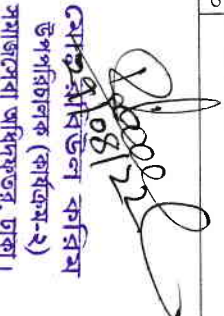 রবিউল করিম
উপপরিচালক (কার্যক্রম-২)
সমাজসেবা অধিদফতর, ঢাকা।